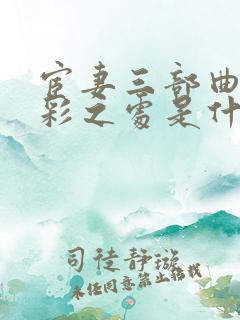 宦妻三部曲
彩之处是什
司徒静璇
未经同意禁止转载